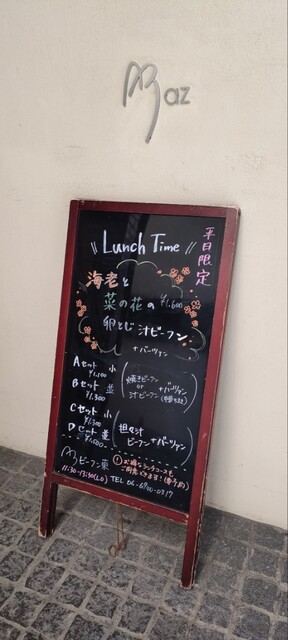 az
平日限定
Lunch Time
海老と
菜の花の ¥1,600
卵とじ 汁ビーフン
+バーツァン
Aセット 小
¥1,100
Bセット 並
¥1,300
焼きビーフン
or
汁ビーフン
+バーツァン
Cセット 小
¥1,300
Dセット 並
¥1,500
担々汁
ビーフン+バーツァン
ビーフン東
お得なランチコースも
11:30-13:30(LO) TEL 06-6940-0317